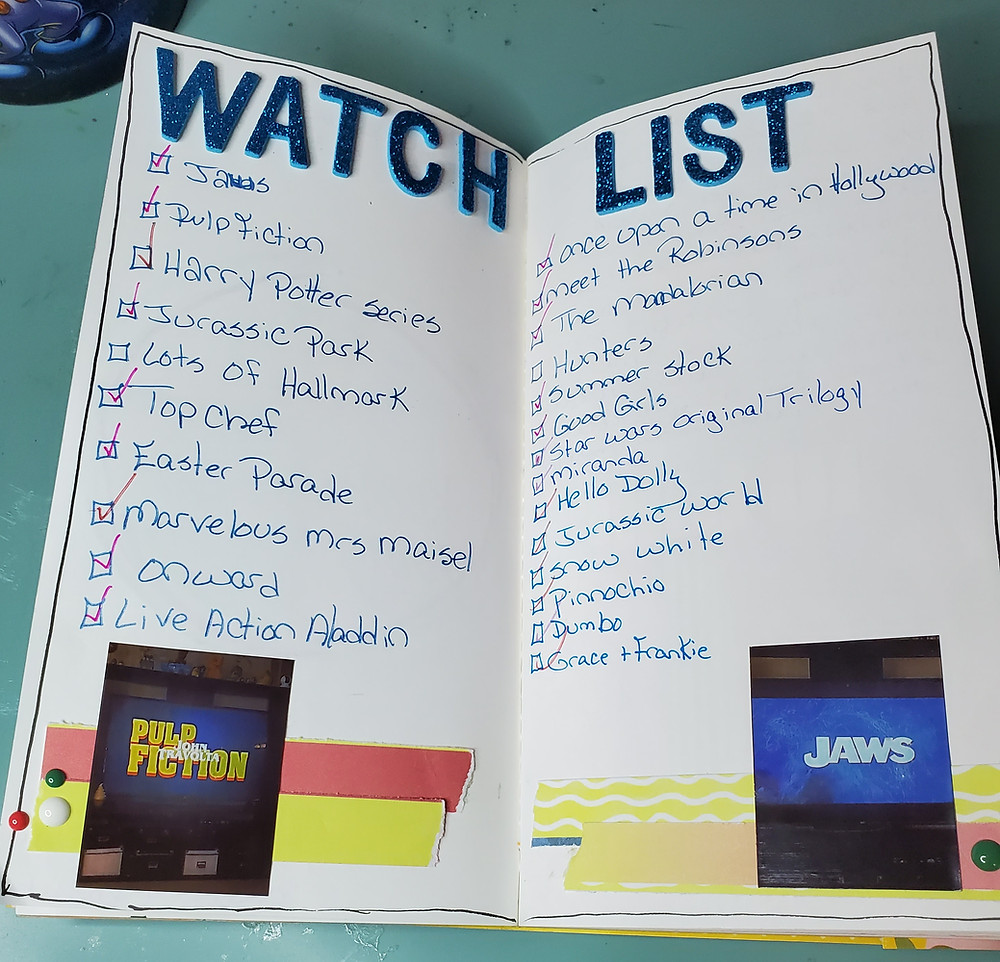 WATCH
Jaws
Pulp Fiction
Harry Potter series
Jurassic Park
Lots of Hallmark
Top Chef
Easter Parade
Marvelous mrs maisel
onward
Live Action Aladdin
PULP
JOHN
TRAVOLTA
FICTION
LIST
once upon a time in Hollywood
meet the Robinsons
The Mandalorian
Hunters
Summer stock
Good Girls
Star wars original Trilogy
miranda
Hello Dolly
Jurassic world
snow white
Pinnochio
Dumbo
Grace + Frankie
JAWS